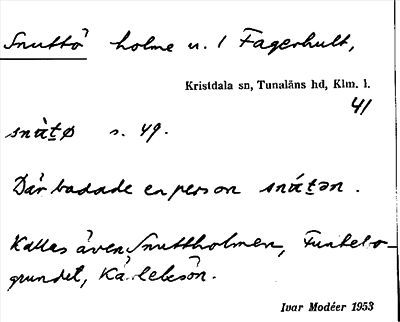 Snuttö holme u. 1 Fagerhult,
Kristdala sn, Tunaläns hd, Klm. l.
41
snàt̲ø s. 49.
Där badade en person snát̲ən.
Kallas även Snuttholmen, Funkelo-
grundet, Kärlebsön.
Ivar Modéer 1953